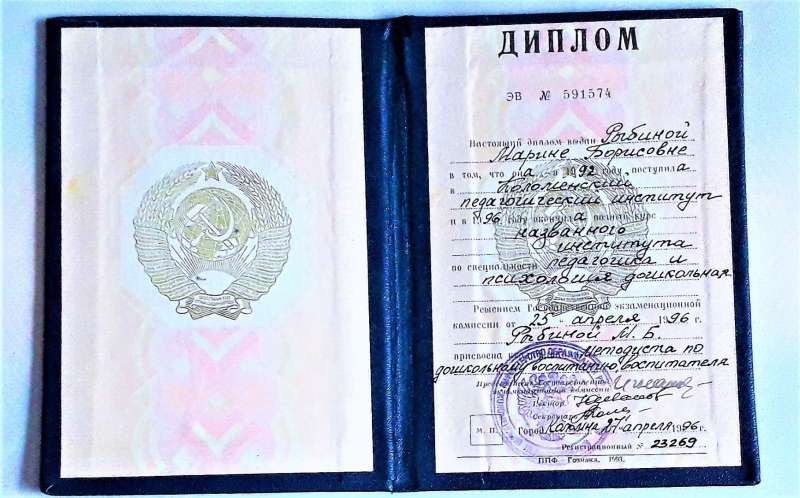 ДИПЛОМ
ЭВ № 591574
Настоящий диплом выдан Рыбиной
Марине Борисовне
в том, что она в 1992 году поступила
в Коломенский
педагогический институт
и в 1996 году окончила полный курс
названного
института
по специальности педагогика и
психология дошкольная
Решением Государственной экзаменационной
комиссии от 25 апреля 1996 г.
Рыбиной М. Б.
присвоена методиста по
дошкольному воспитанию, воспитателя
Председатель Государственной
экзаменационной комиссии
Ректор
Секретарь
М. П. Город Коломна 27 апреля 1996 г.
Регистрационный № 23269
ППФ Гознака. 1993.